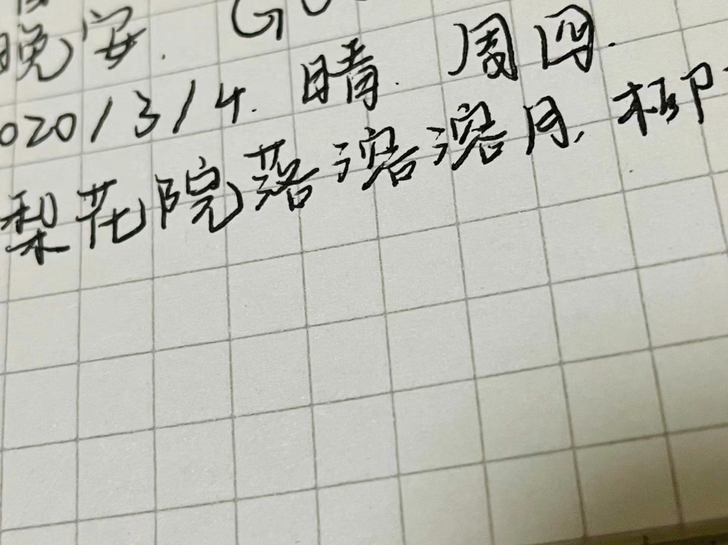 晚安. GO
020/3/4. 晴. 周四.
梨花院落溶溶月, 柳